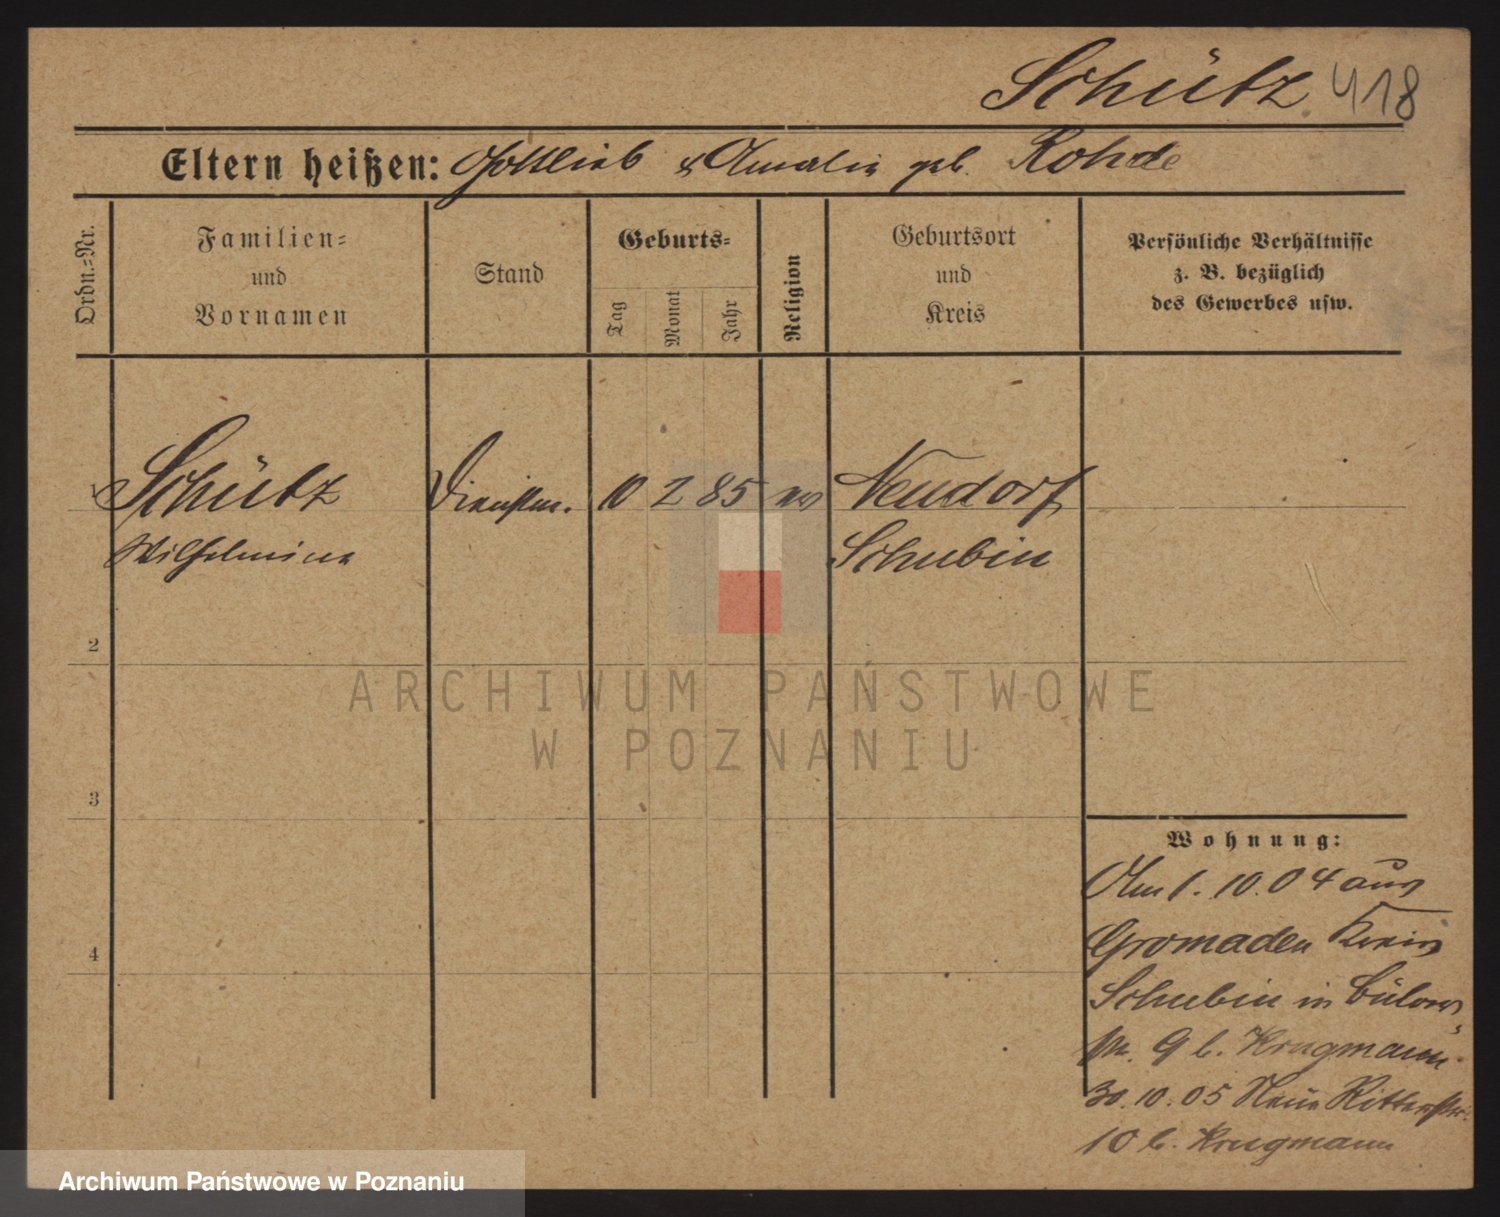 Schütz. 418
Eltern heißen: Gottlieb & Amalie geb. Rohde
Ordn.=Nr.
Familien=
und
Vornamen
Stand
Geburts=
Tag
Monat
Jahr
Religion
Geburtsort
und
Kreis
Persönliche Verhältnisse
z. B. bezüglich
des Gewerbes usw.
1 Schütz Dienstm. 10 2 85 ev Neudorf
Wilhelmine Schubin
2
3
4
ARCHIWUM PAŃSTWOWE
W POZNANIU
Wohnung:
Am 1. 10. 04 aus
Gromaden Kreis
Schubin in Bülow-
str. 9 b. Krugmann.
30. 10. 05 Neue Ritterstr.
10 b. Krugmann
Archiwum Państwowe w Poznaniu